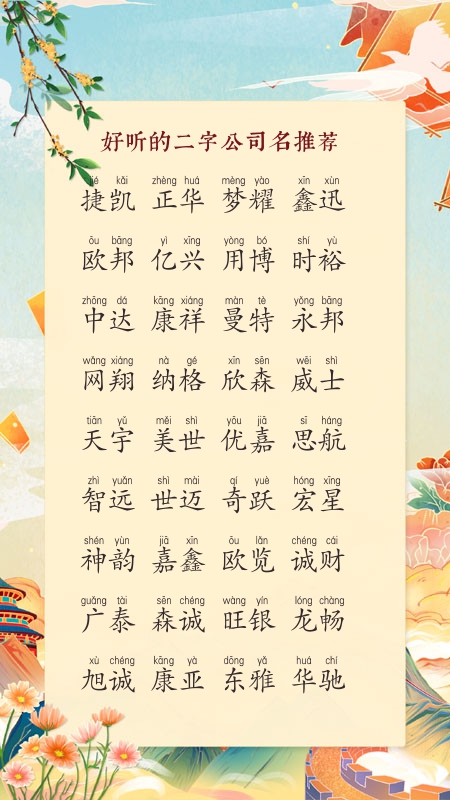 好听的二字公司名推荐
jié kǎi zhèng huá mèng yào xīn xùn
捷凯 正华 梦耀 鑫迅
ōu bāng yì xīng yòng bó shí yù
欧邦 亿兴 用博 时裕
zhōng dá kāng xiáng màn tè yǒng bāng
中达 康祥 曼特 永邦
wǎng xiáng nà gé xīn sēn wēi shì
网翔 纳格 欣森 威士
tiān yǔ měi shì yōu jiā sī háng
天宇 美世 优嘉 思航
zhì yuǎn shì mài qí yuè hóng xīng
智远 世迈 奇跃 宏星
shén yùn jiā xīn ōu lǎn chéng cái
神韵 嘉鑫 欧览 诚财
guǎng tài sēn chéng wàng yín lóng chàng
广泰 森诚 旺银 龙畅
xù chéng kāng yà dōng yǎ huá chí
旭诚 康亚 东雅 华驰